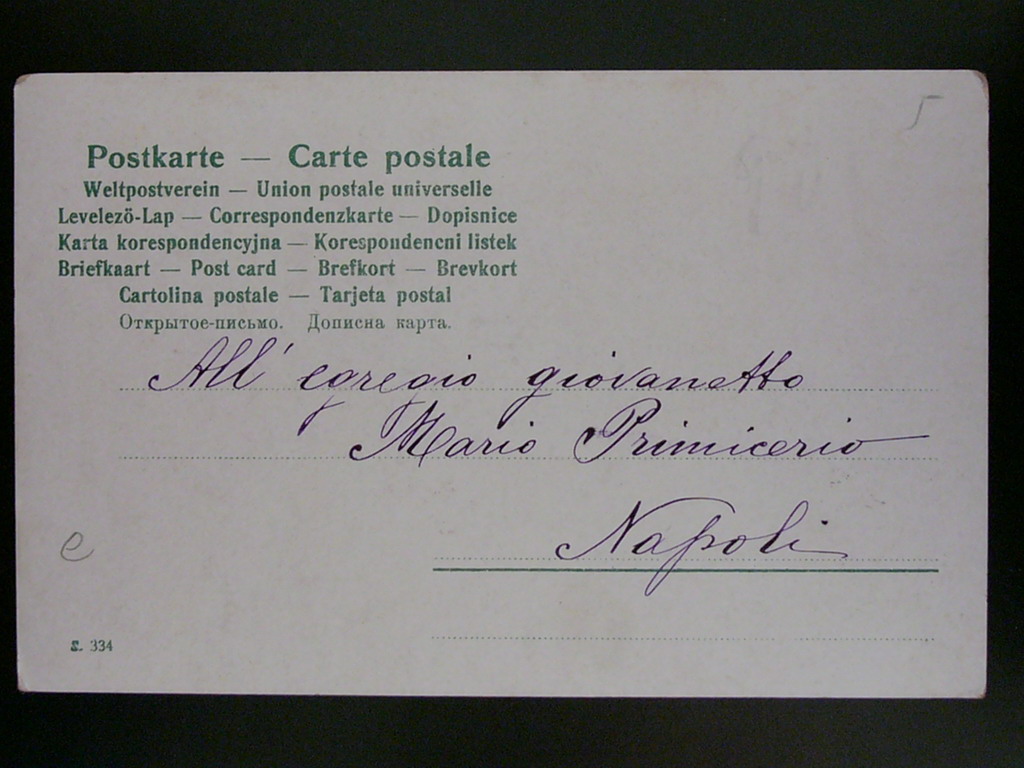 5
Postkarte — Carte postale
Weltpostverein — Union postale universelle
Levelezö-Lap — Correspondenzkarte — Dopisnice
Karta korespondencyjna — Korespondencni listek
Briefkaart — Post card — Brefkort — Brevkort
Cartolina postale — Tarjeta postal
Открытое-письмо. Дописна карта.
All' egregio giovanetto
Mario Primicerio
Napoli
e
S. 334